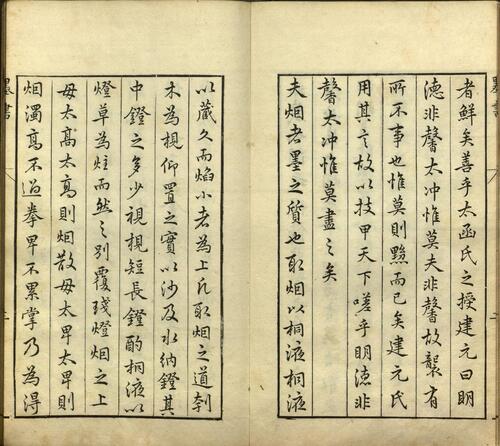 者鮮矣善乎太函氏之授建元曰明
德非馨太冲惟莫夫非馨故襲有
所不事也惟莫則黟而已矣建元氏
用其言故以技甲天下嗟乎明德非
馨太冲惟莫盡之矣
夫烟者墨之質也取烟以桐液桐液
以藏久而焰小者為上凡取烟之道刳
木為梘仰置之實以沙及水納鐙其
中鐙之多少視梘短長鐙酌桐液以
燈草為炷而然之別覆殘燈烟之上
毋太高太高則烟散毋太卑太卑則
烟濁高不過拳卑不累掌乃為得
墨書
二
墨書
三